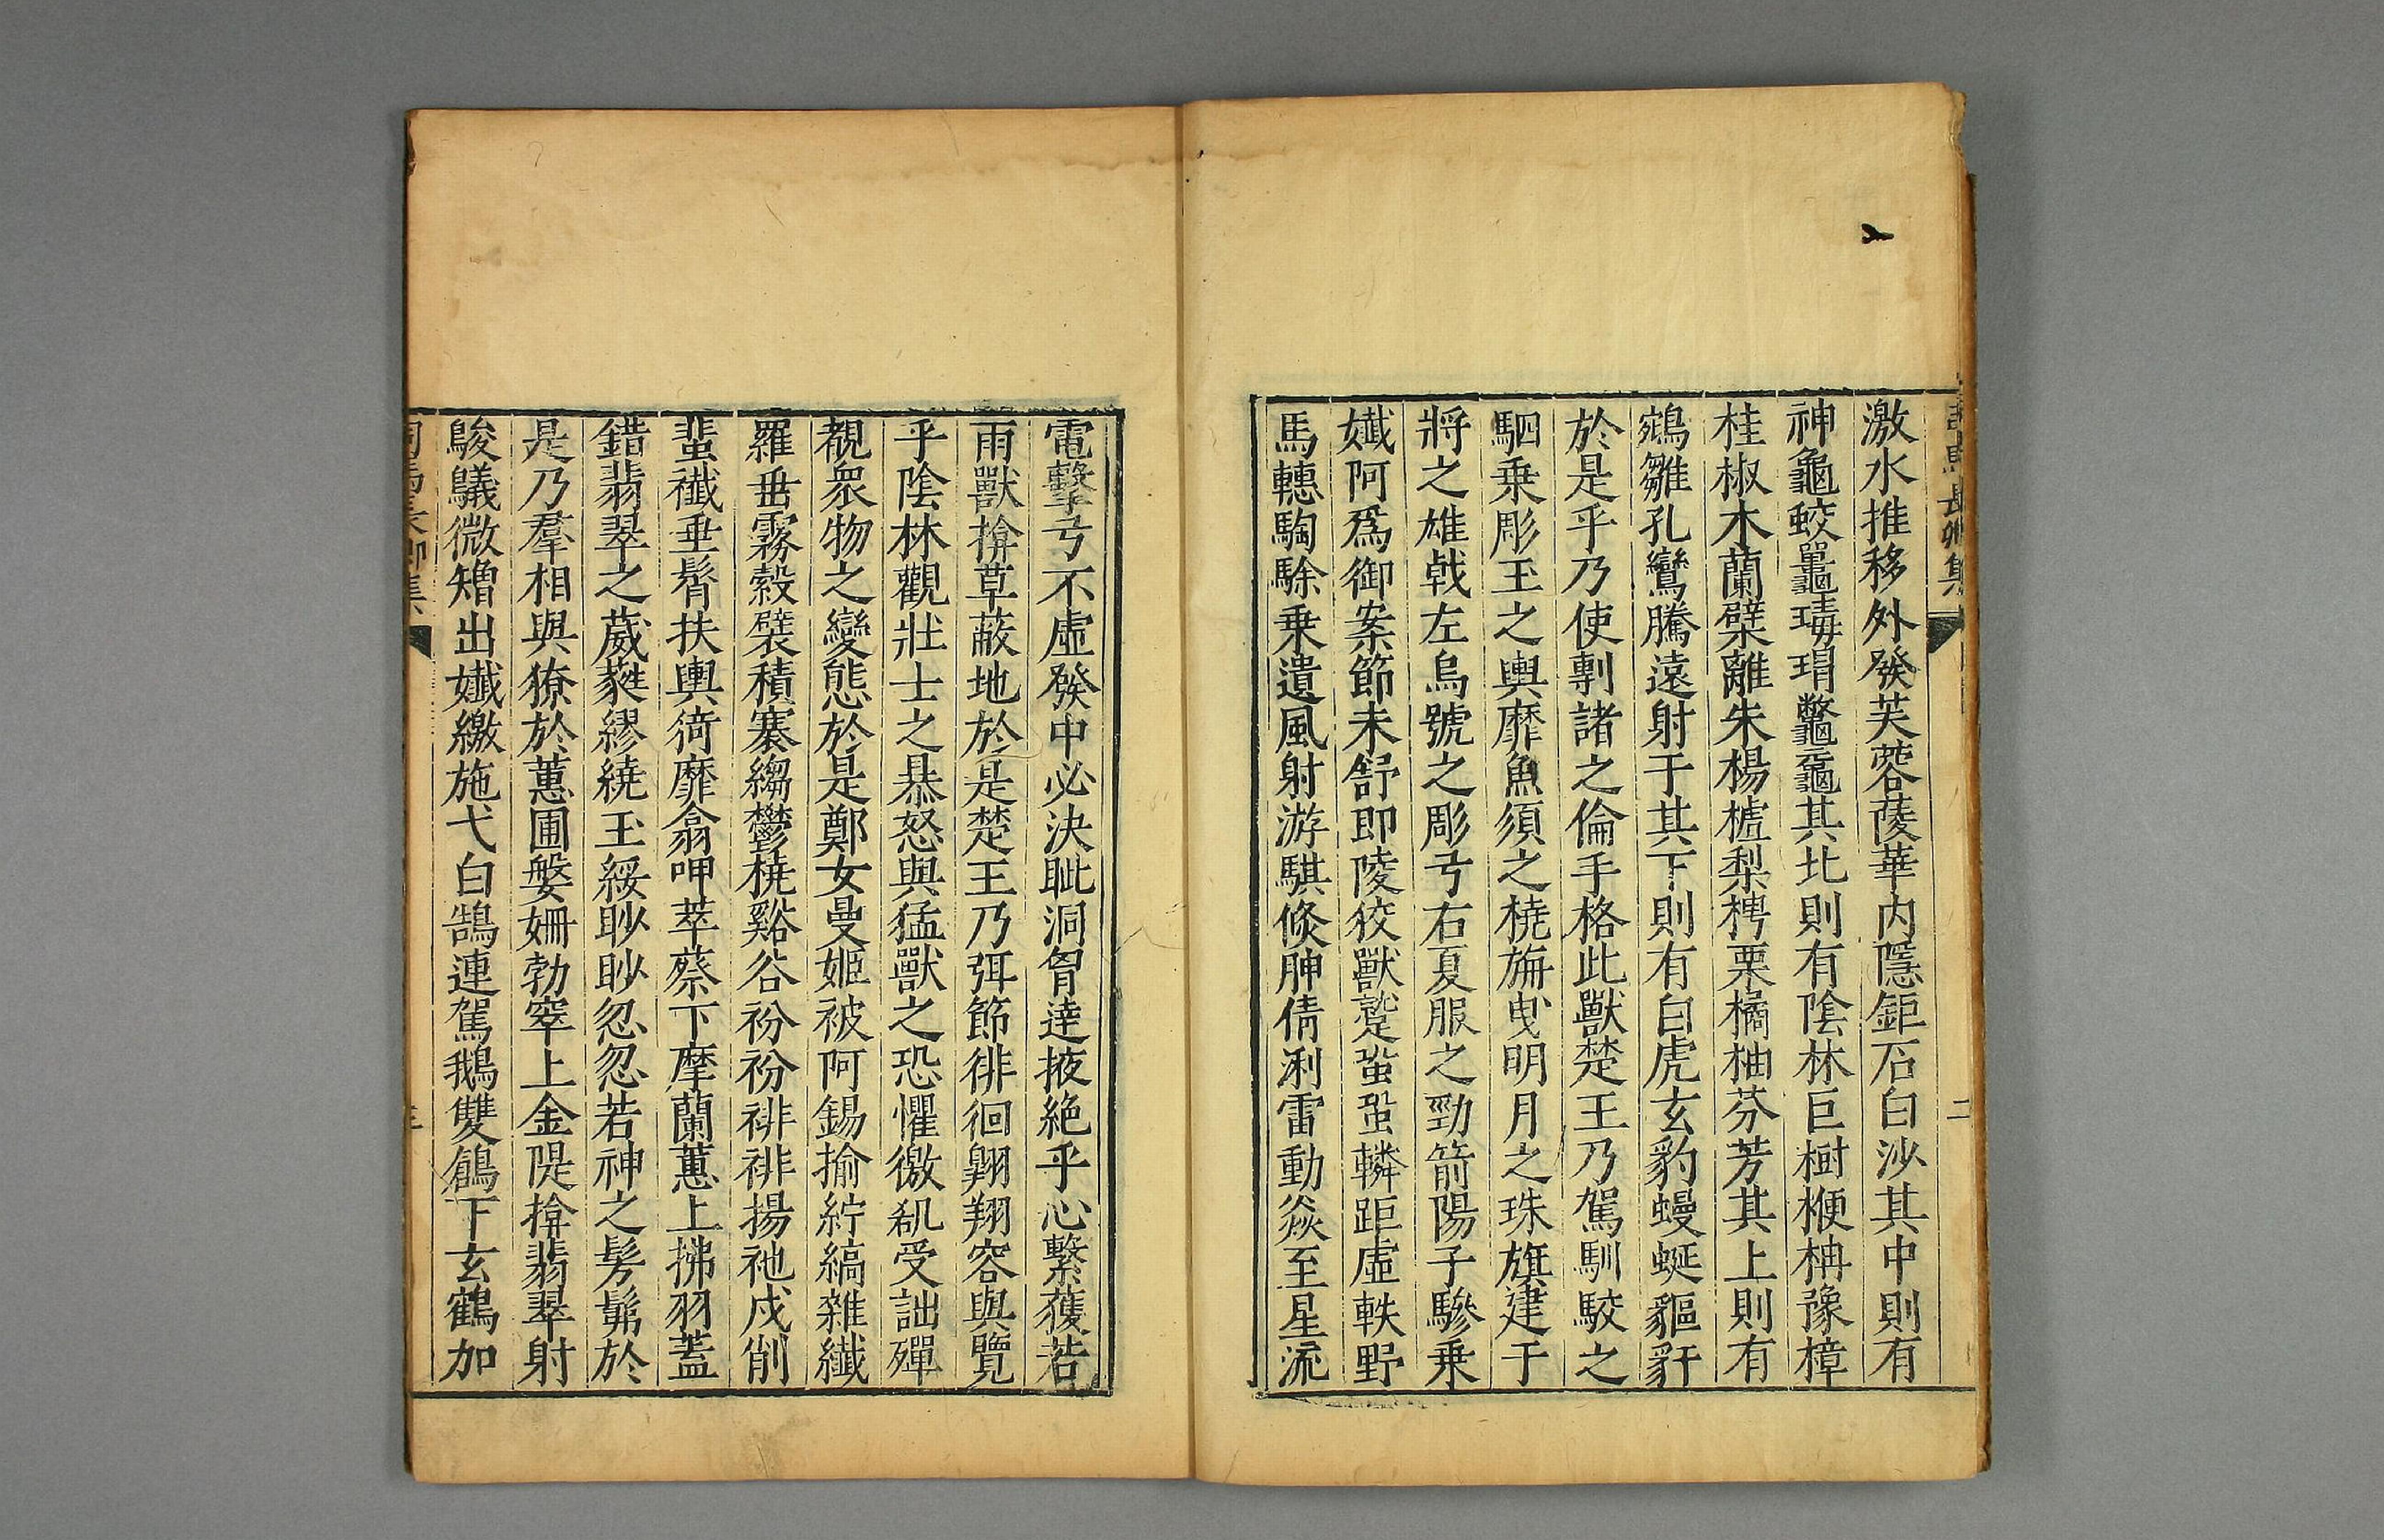 司馬長卿集
二
激水推移外發芙蓉蔆華內隱鉅石白沙其中則有
神龜蛟鼉瑇瑁鼈黿其北則有陰林巨樹楩柟豫樟
桂椒木蘭檗離朱楊樝梨梬栗橘柚芬芳其上則有
鵷雛孔鸞騰遠射干其下則有白虎玄豹蟃蜒貙豻
於是乎乃使剸諸之倫手格此獸楚王乃駕馴駮之
駟乘彫玉之輿靡魚須之橈旃曳明月之珠旗建干
將之雄戟左烏號之彫弓右夏服之勁箭陽子驂乘
孅阿爲御案節未舒即陵狡獸蹵蛩蛩轔距虛軼野
馬轊騊駼乗遺風射游騏倏胂倩浰雷動焱至星流
電擊弓不虛發中必決眦洞胷達掖絕乎心繫獲若
雨獸揜草蔽地於是楚王乃弭節徘徊翺翔容與覽
乎陰林觀壯士之暴怒與猛獸之恐懼徼𠊩受詘殫
覩衆物之變態於是鄭女曼姬被阿錫揄紵縞雜纖
羅垂霧縠襞積褰縐鬱橈谿谷衯衯裶裶揚袘戌削
蜚襳垂髾扶輿猗靡翕呷萃蔡下摩蘭蕙上拂羽蓋
錯翡翠之葳蕤繆繞玉綏眇眇忽忽若神之髣髴於
是乃羣相與獠於蕙圃媻姍勃窣上金隄揜翡翠射
鵔鸃微矰出孅繳施弋白鵠連駕鵝雙鶬下玄鶴加
司馬長卿集
三